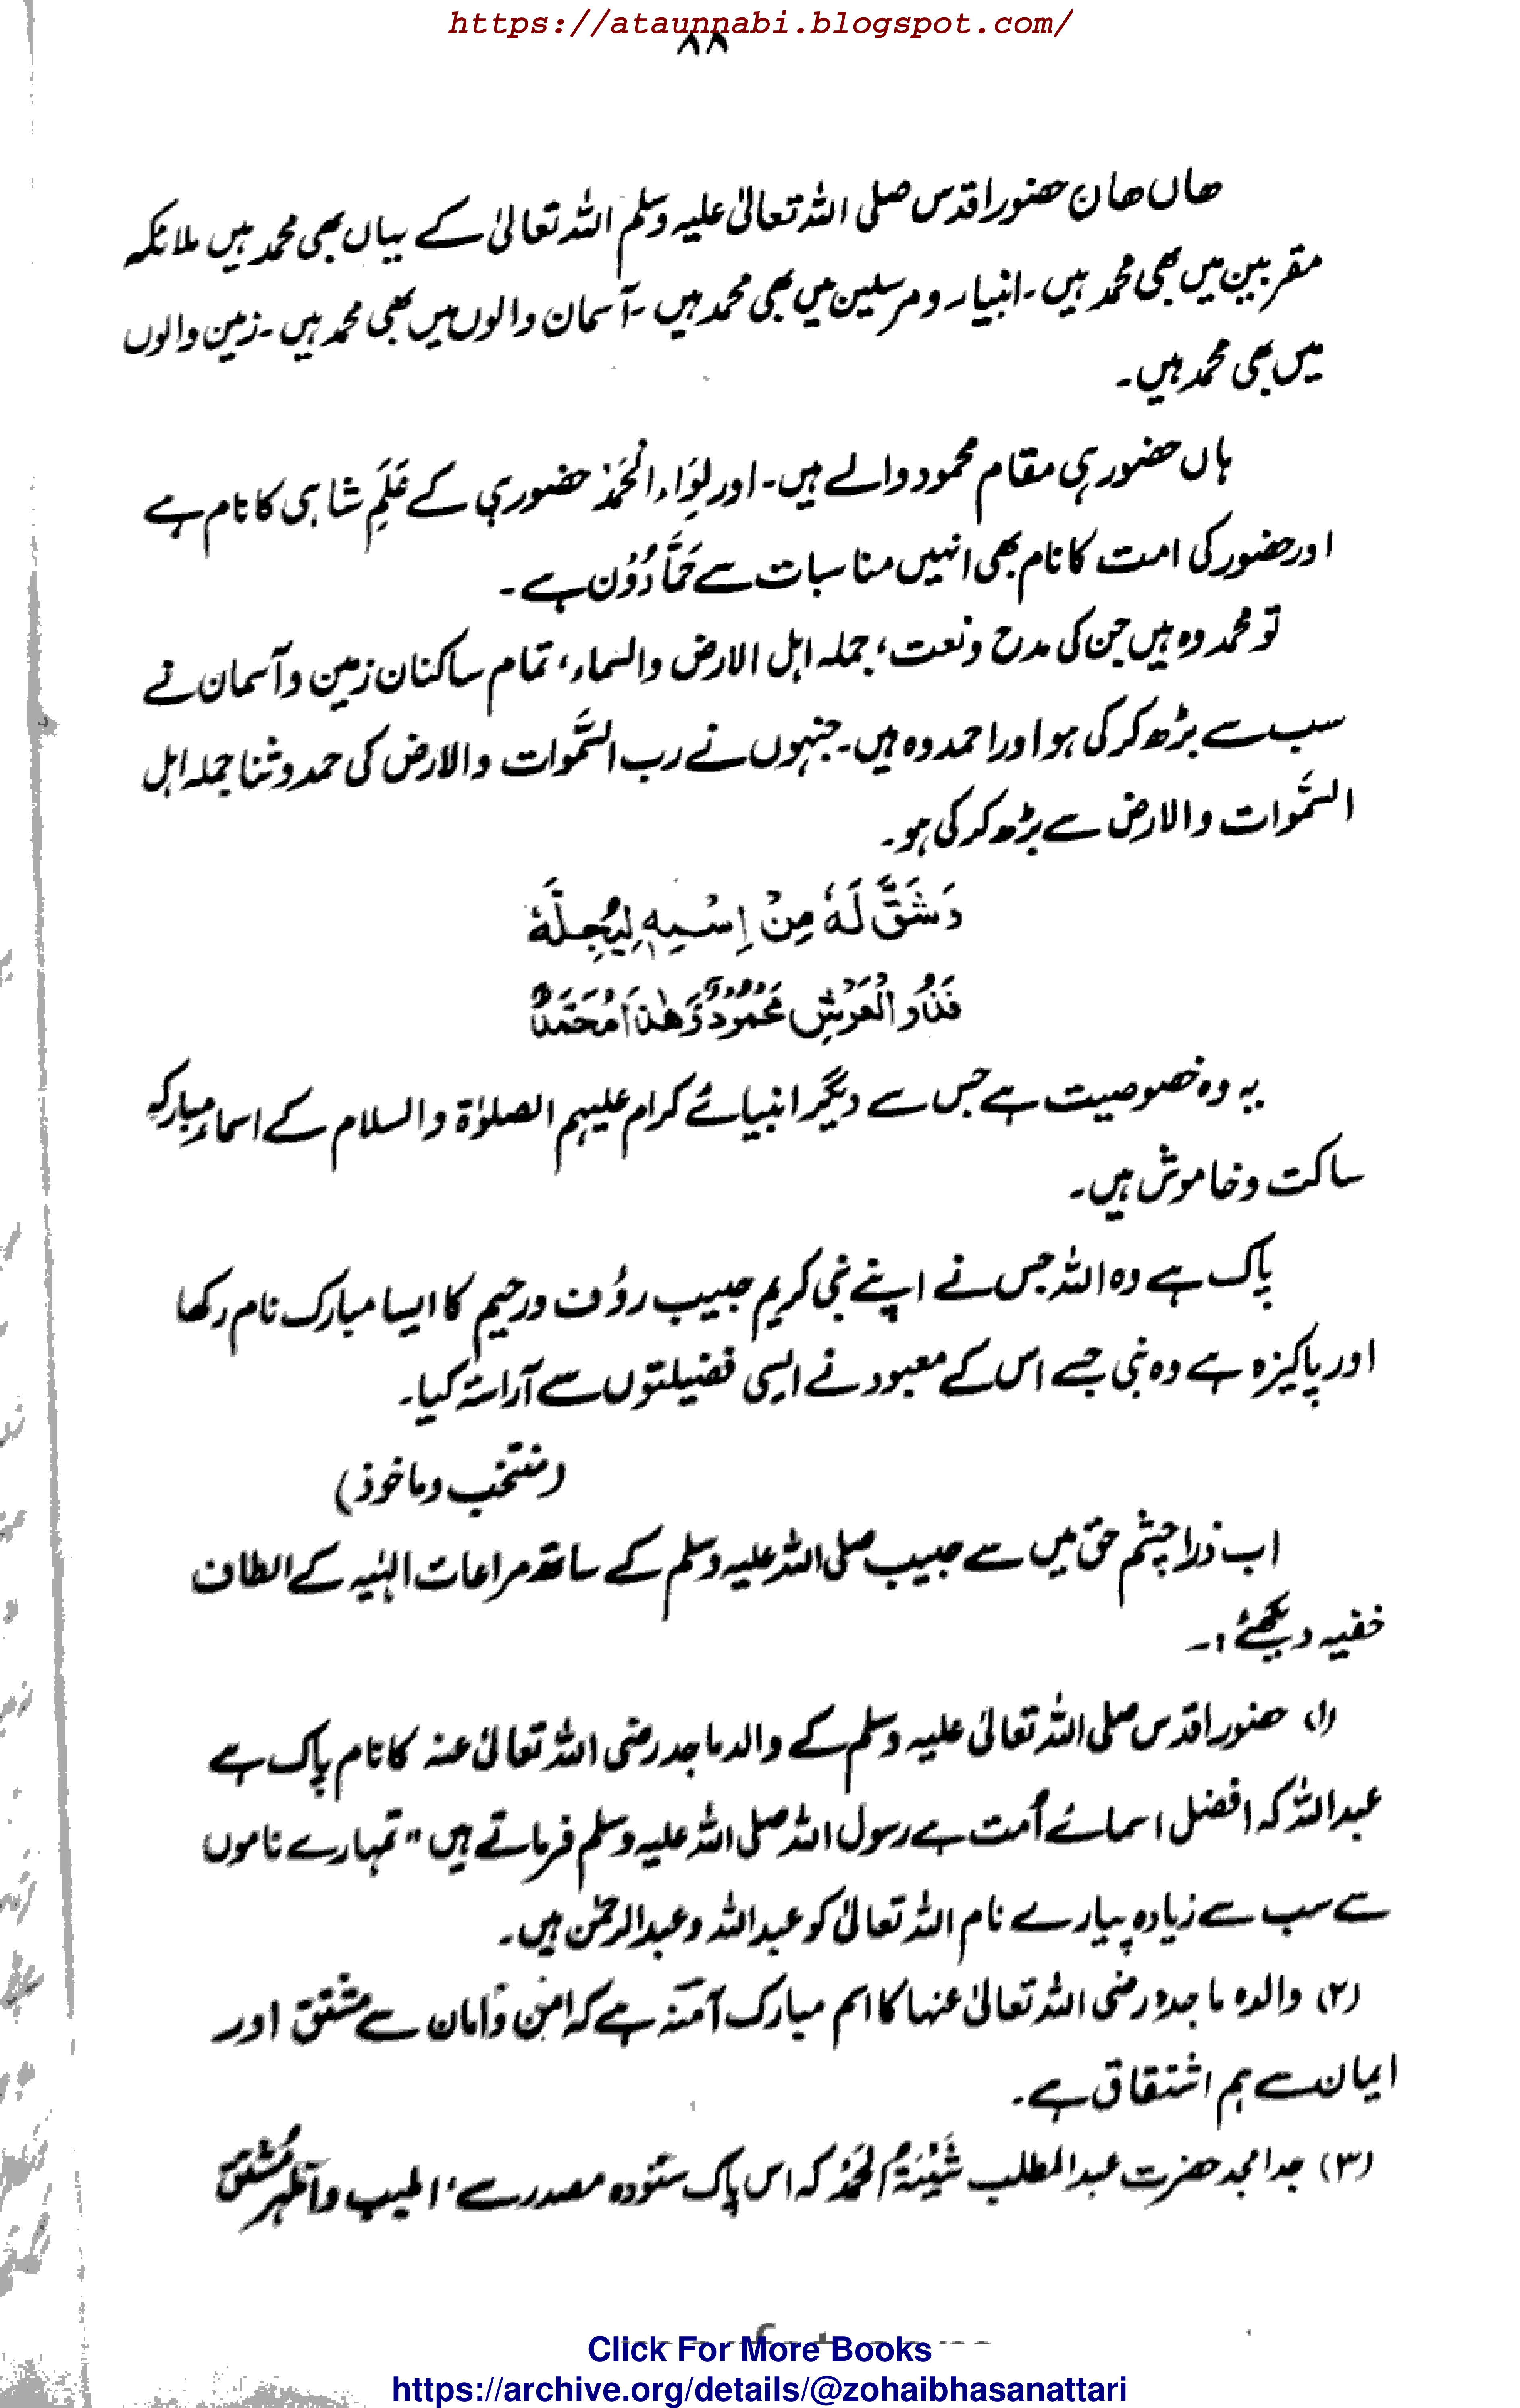 https://ataunnabi.blogspot.com/
۸۸
ھاں ھاں حضور اقدس صلی اللہ تعالیٰ علیہ وسلم اللہ تعالیٰ کے یہاں بھی محمد ہیں ملائکہ
مقربین میں بھی محمد ہیں۔ انبیاء و مرسلین میں بھی محمد ہیں۔ آسمان والوں میں بھی محمد ہیں۔ زمین والوں
میں بھی محمد ہیں۔
ہاں حضور ہی مقام محمود والے ہیں۔ اور لِوَاء الْحَمْدْ حضور ہی کے عَلَمِ شاہی کا نام ہے
اور حضور کی امت کا نام بھی انہیں مناسبات سے حَمَّادُوْن ہے۔
تو محمد وہ ہیں جن کی مدح و نعت، جملہ اہل الارض والسماء، تمام ساکنان زمین و آسمان نے
سب سے بڑھ کر کی ہو اور احمد وہ ہیں۔ جنہوں نے رب السَّمٰوات والارض کی حمد و ثنا جملہ اہل
السَّمٰوات والارض سے بڑھ کر کی ہو۔
وَشَقَّ لَہٗ مِنْ اِسْمِہٖ لِیُجِلَّہٗ
فَذُو الْعَرْشِ مَحْمُوْدٌ وَّھٰذَا مُحَمَّدٌ
یہ وہ خصوصیت ہے جس سے دیگر انبیائے کرام علیہم الصلوٰۃ والسلام کے اسماء مبارکہ
ساکت و خاموش ہیں۔
پاک ہے وہ اللہ جس نے اپنے نبی کریم حبیب رؤف و رحیم کا ایسا مبارک نام رکھا
اور پاکیزہ ہے وہ نبی جسے اس کے معبود نے ایسی فضیلتوں سے آراستہ کیا۔
(منتخب و ماخوذ)
اب ذرا چشم حق میں سے حبیب صلی اللہ علیہ وسلم کے ساتھ مراعات الہٰیہ کے الطاف
خفیہ دیکھئے :۔
(۱) حضور اقدس صلی اللہ تعالیٰ علیہ وسلم کے والد ماجد رضی اللہ تعالیٰ عنہ کا نام پاک ہے
عبد اللہ کہ افضل اسمائے اُمت ہے رسول اللہ صلی اللہ علیہ وسلم فرماتے ہیں "تمہارے ناموں
سے سب سے زیادہ پیارے نام اللہ تعالیٰ کو عبد اللہ و عبد الرحمٰن ہیں۔
(۲) والدہ ماجدہ رضی اللہ تعالیٰ عنہا کا اسم مبارک آمنہ ہے کہ امن و امان سے مشتق اور
ایمان سے ہم اشتقاق ہے۔
(۳) جد امجد حضرت عبد المطلب شَیْبَۃُ الْحَمْدُ کہ اس پاک ستودہ مصدر سے، اطیب و اطہر مُشتق
Click For More Books
https://archive.org/details/@zohaibhasanattari